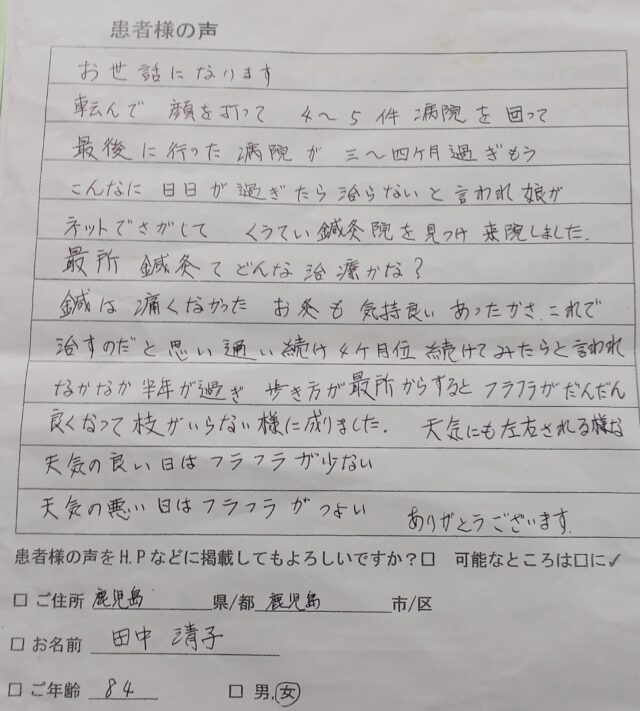 患者様の声
お世話になります
転んで 顔を打って 4～5件 病院を回って
最後に行った病院が 三～四ケ月過ぎもう
こんなに日日が過ぎたら治らないと言われ娘が
ネットでさがして くうてい鍼灸院を見つけ来院しました.
最所 鍼灸てどんな治療かな?
鍼は痛くなかった お灸も気持良いあったかさ.これで
治すのだと思い通い続け4ケ月位続けてみたらと言われ
なかなか半年が過ぎ 歩き方が最所からするとフラフラがだんだん
良くなって枝がいらない様に成りました. 天気にも左右される様な
天気の良い日はフラフラが少ない
天気の悪い日はフラフラがつよい ありがとうございます.
患者様の声をH.Pなどに掲載してもよろしいですか?□ 可能なところは□に✓
□ ご住所 鹿児島 県/都 鹿児島 市/区
□ お名前 田中 清子
□ ご年齢 84 □ 男.女